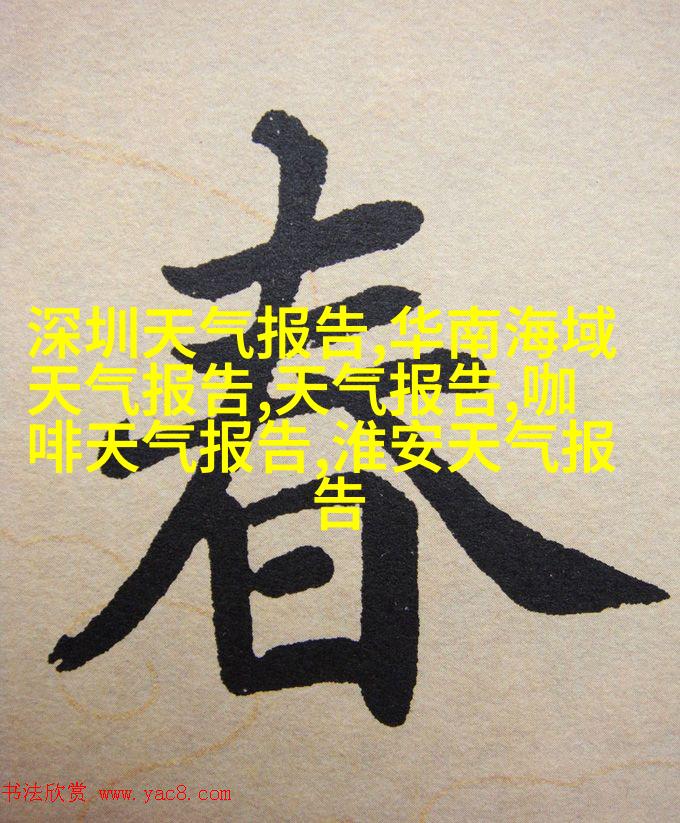 春
深圳天气报告,华南海域
天气报告,天气报告,咖
啡天气报告,淮安天气报
告
书法欣赏 www.yac8.com